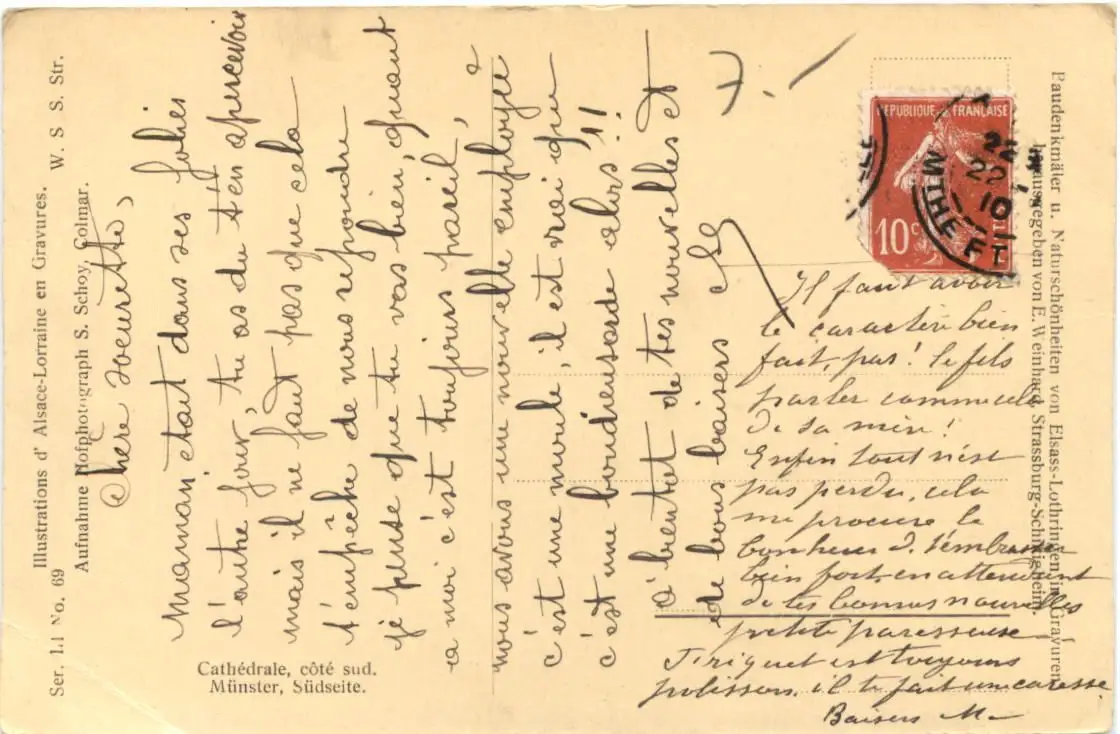 Ser. I.1 No. 69
Illustrations d' Alsace-Lorraine en Gravures. W. S. S. Str.
Aufnahme Hofphotograph S. Schoy, Colmar.
Chère soeurette,
Maman était dans ses folies
l'autre jour, tu as du t'en apercevoir
mais il ne faut pas que cela
t'empêche de nous répondre
je pense que tu vas bien, quant
à moi c'est toujours pareil,
nous avons une nouvelle employée
c'est une moule, il est vrai qu'
c'est une boudeusarde alors!!
A bientôt de tes nouvelles et
de bons baisers
7.-
RÉPUBLIQUE FRANÇAISE
10c
22
10
Il faut avoir
le caractère bien
fait, pas! le fils
parler comme cela
de sa mère!
Enfin tout n'est
pas perdu, cela
me procure le
bonheur de t'embrasser
bien fort, en attendant
de tes bonnes nouvelles
petite paresseuse
est toujours
polisson, il te fait une caresse
Baisers M
Baudenkmäler u. Naturschönheiten von Elsass-Lothringen in Gravuren
herausgegeben von E. Weinhard, Strassburg-Schiltigheim.
Cathédrale, côté sud.
Münster, Südseite.